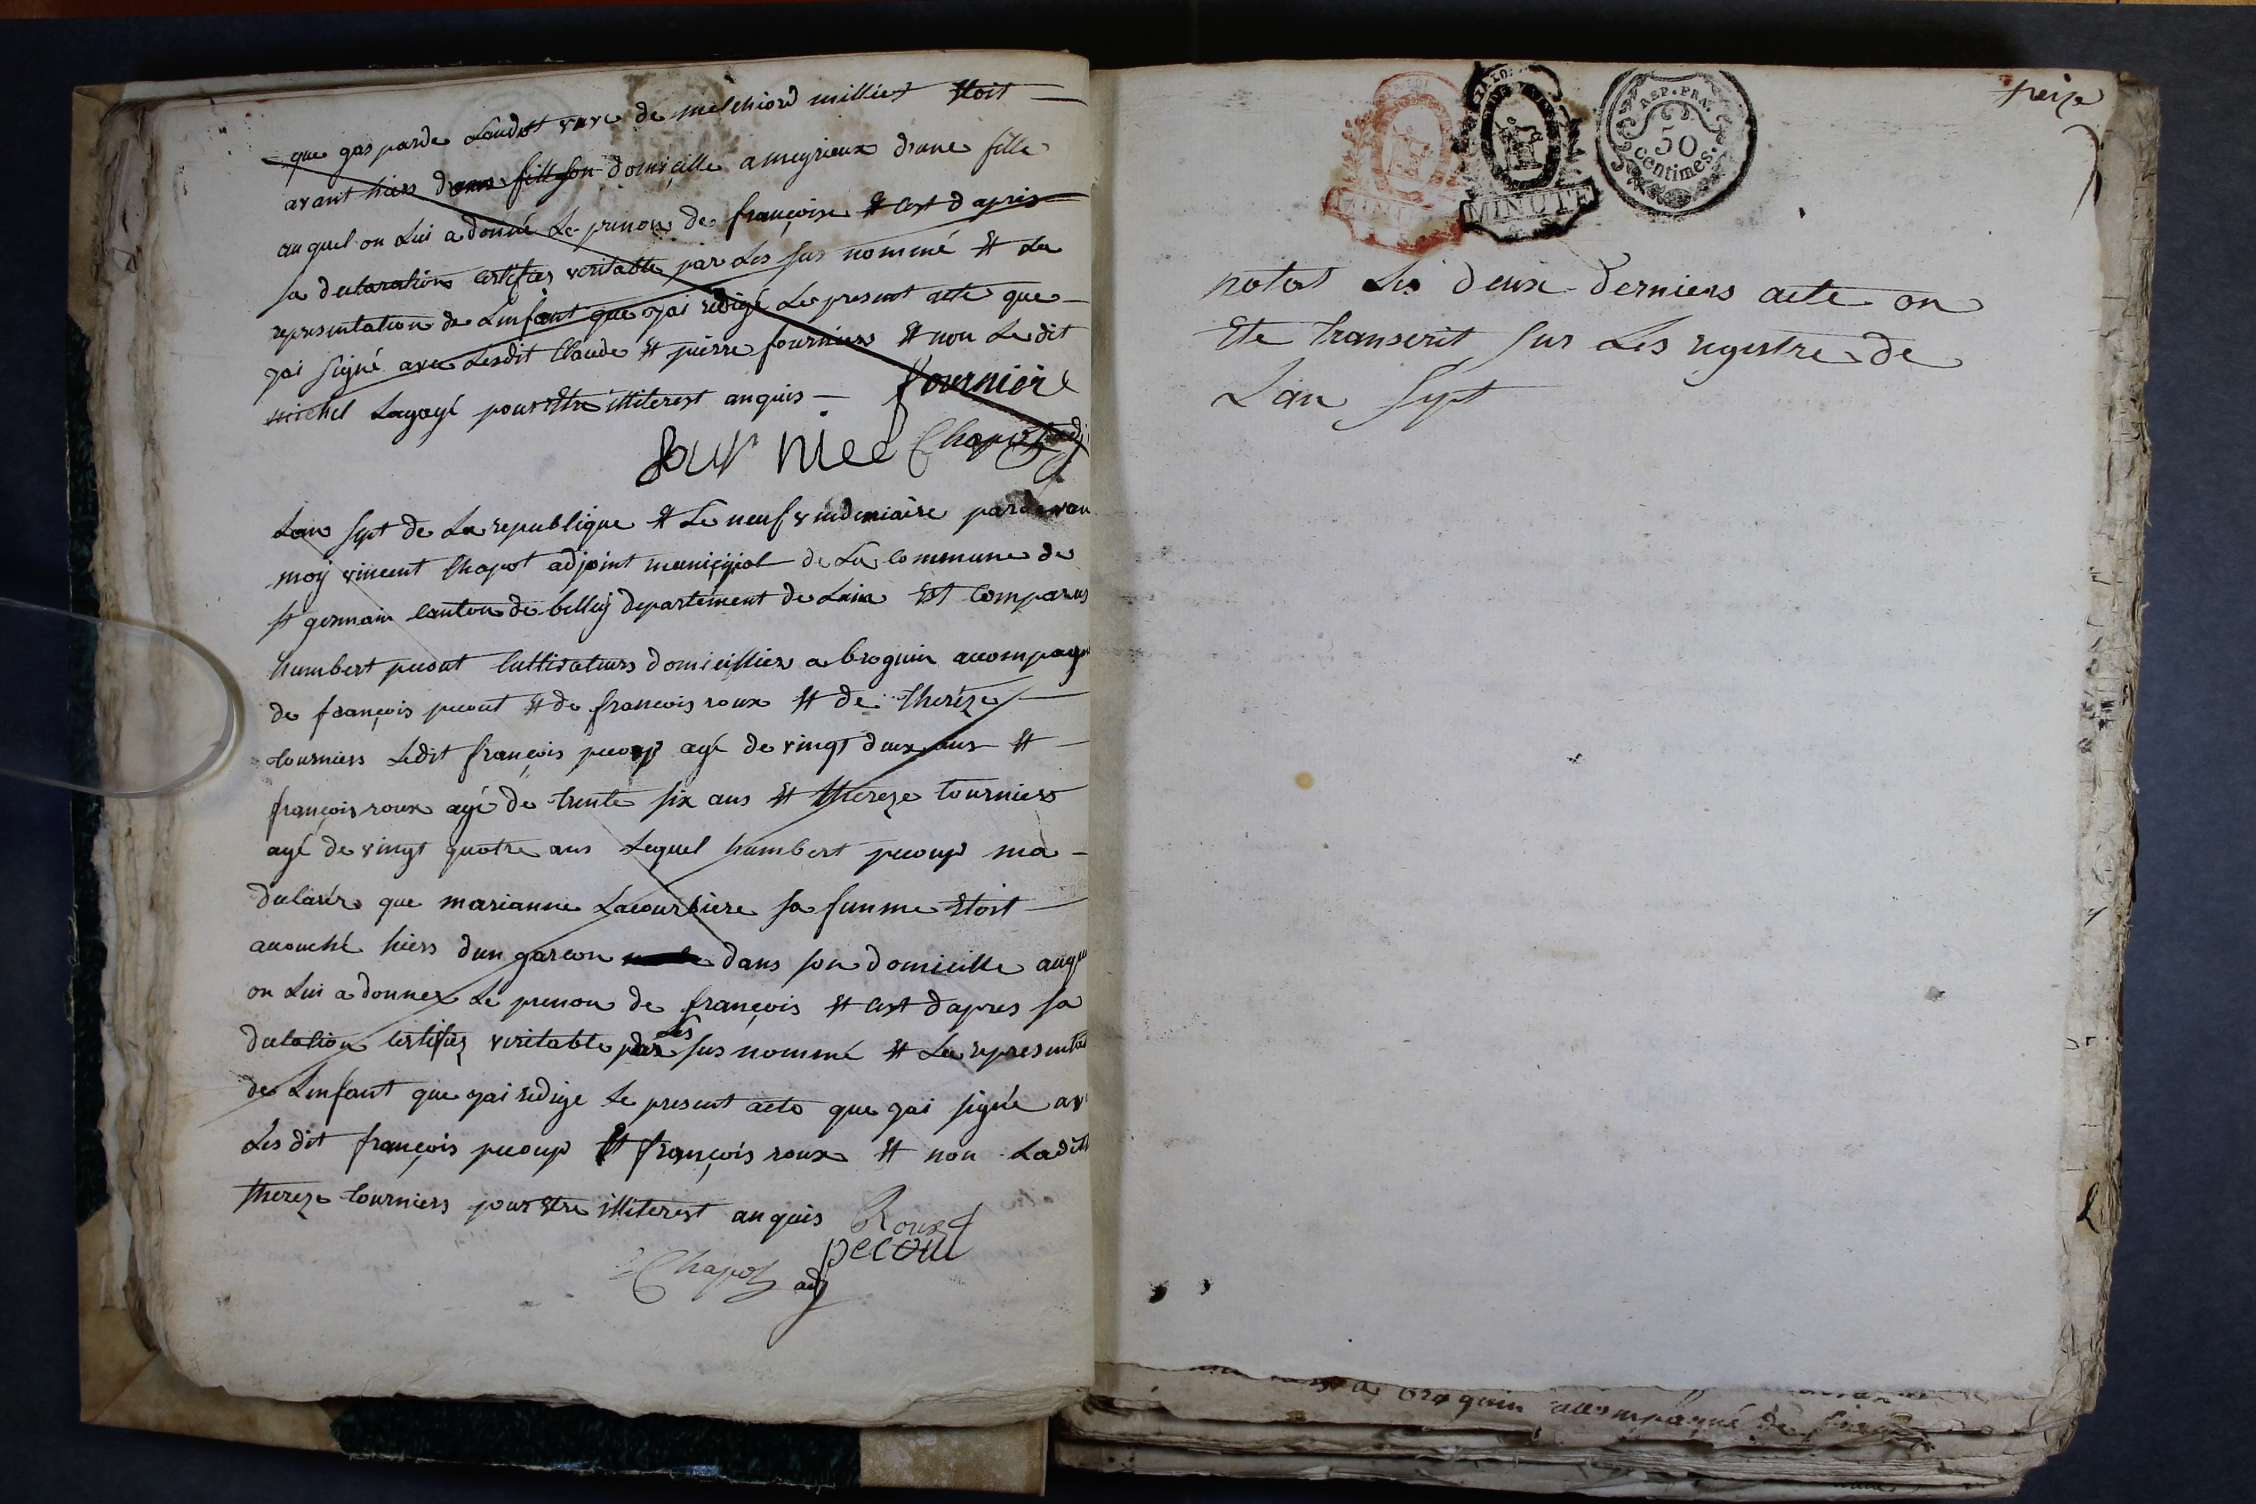 que gasparde Laudet veve de melchiord milliet Etoit
avant hiers dans son domicille a meyrieux d'une fille
auquel on Lui a donné Le prenon de françoise Et Cest d'apres
sa declaration certifiez veritable par Les sus nommé Et La
representation de Lenfant que jai redigé Le present acte que
jai signé avec Lesdit Claude Et pierre fourniers Et non Ledit
michel Lagayé pour Etre illiterest anquis
fournier
four nier Chapot adj
Lan sept de La republique Et Le neuf vindemiaire pardevan
moy vincent Chapot adjoint municipal de La Commune de
st germain Canton de belley departement de Lain Est Comparus
humbert pecout Cultivateurs domicillier a brognin acompagn
de françois pecout Et de francois roux Et de therèze
tourniers Ledit françois pecoup agé de vingt deux ans Et
françois roux agé de trente six ans Et thereze tourniers
agé de vingt quatre ans Lequel humbert pecoup ma
declarér que marianne Lacourbiere sa femme Etoit
acouché hiers d'un garcon dans son domicille auque
on Lui a donnez Le prenon de françois Et Cest d'apres sa
declation certifiez veritable par Les sus nommé Et La representat
de Lenfant que jai redigé Le present acte que jai signé av
Les dit françois pecoup Et françois roux Et non Ladit
thereze tourniers pour Etre illiterest anquis Roux
pecout
Chapot adj
treize
MINUTE
REP. FRA.
50
centimes.
MINUTE
notat Les deux derniers acte on
Ete transcrit sur Les registre de
Lan sept
a brognin accompagné de